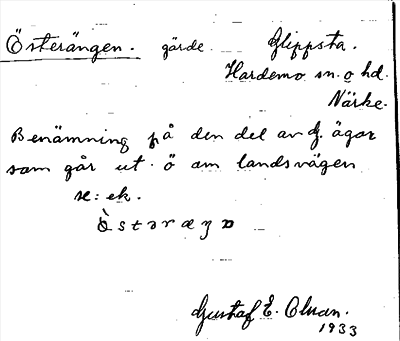 Österängen. gärde. Glippsta.
Hardemo sn. o hd.
Närke.
Benämning på den del av G. ägor
som går ut ö om landsvägen
se: ek.
Gustaf E. Olsson.
1933